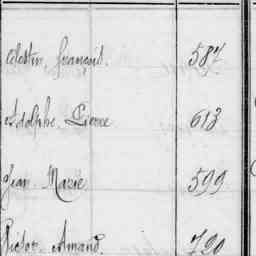 Celestin, françois. 587
Adolphe Pierre 613
Jean Marie 599
Victor Amand. 720